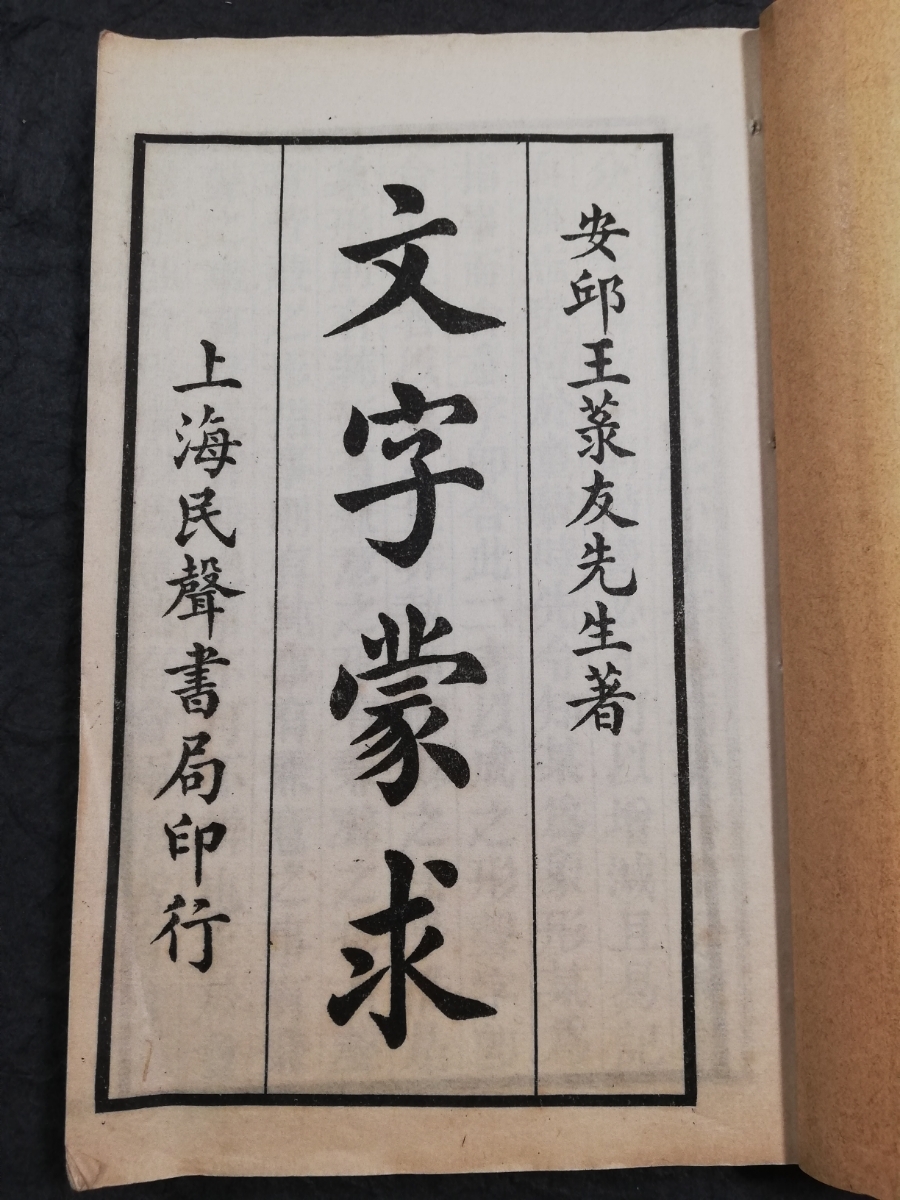 安邱王菉友先生著
文字蒙求
上海民聲書局印行